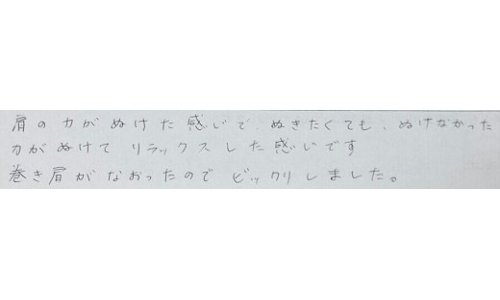 肩の力がぬけた感じで ぬきたくても、ぬけなかった
力がぬけて リラックスした感じです
巻き肩がなおったので ビックリしました。